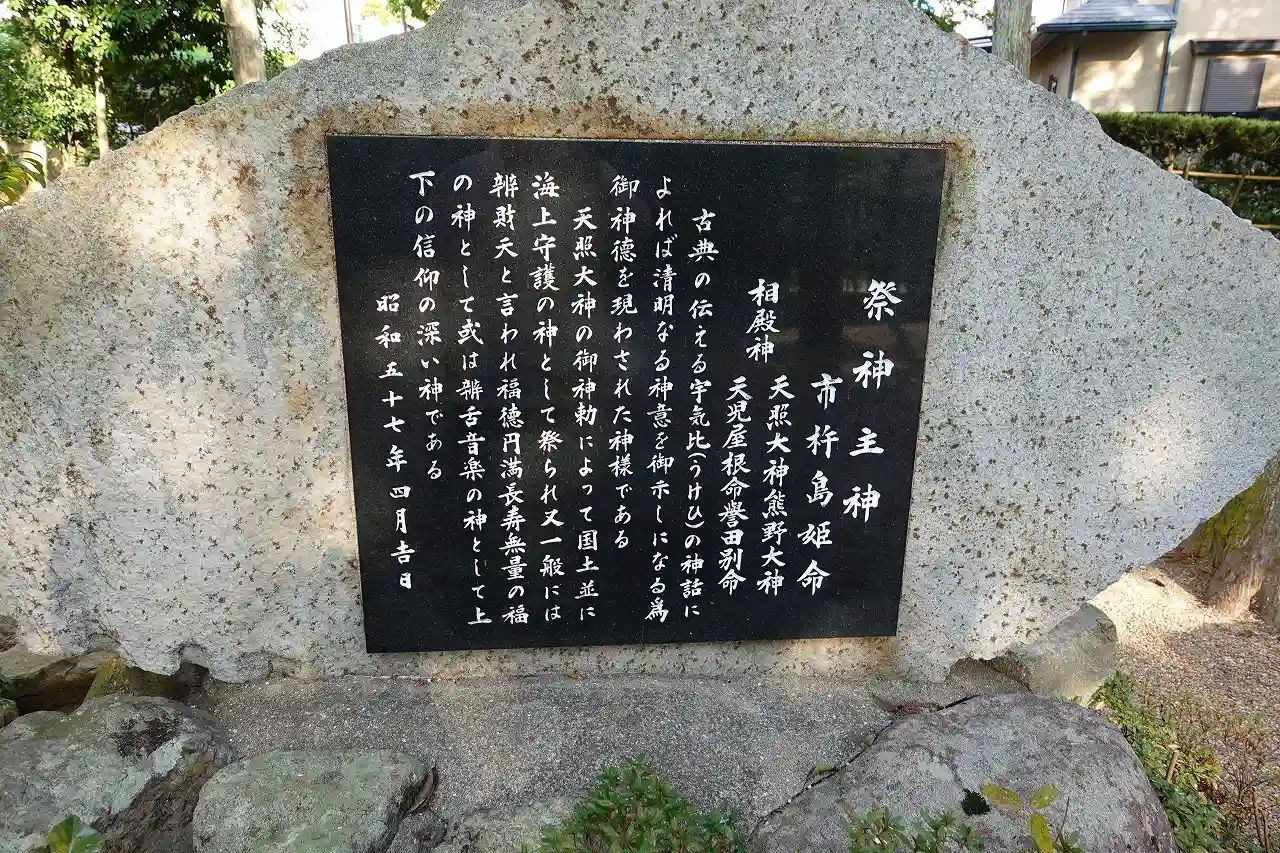 祭神主神
市杵島姫命
相殿神
天照大神熊野大神
天児屋根命誉田別命
古典の伝える宇気比(うけひ)の神話に
よれば清明なる神意を御示しになる為
御神徳を現わされた神様である
天照大神の御神勅によって国土並に
海上守護の神として祭られ又一般には
辨財天と言われ福徳円満長寿無量の福
の神として或は辨舌音楽の神として上
下の信仰の深い神である
昭和五十七年四月吉日